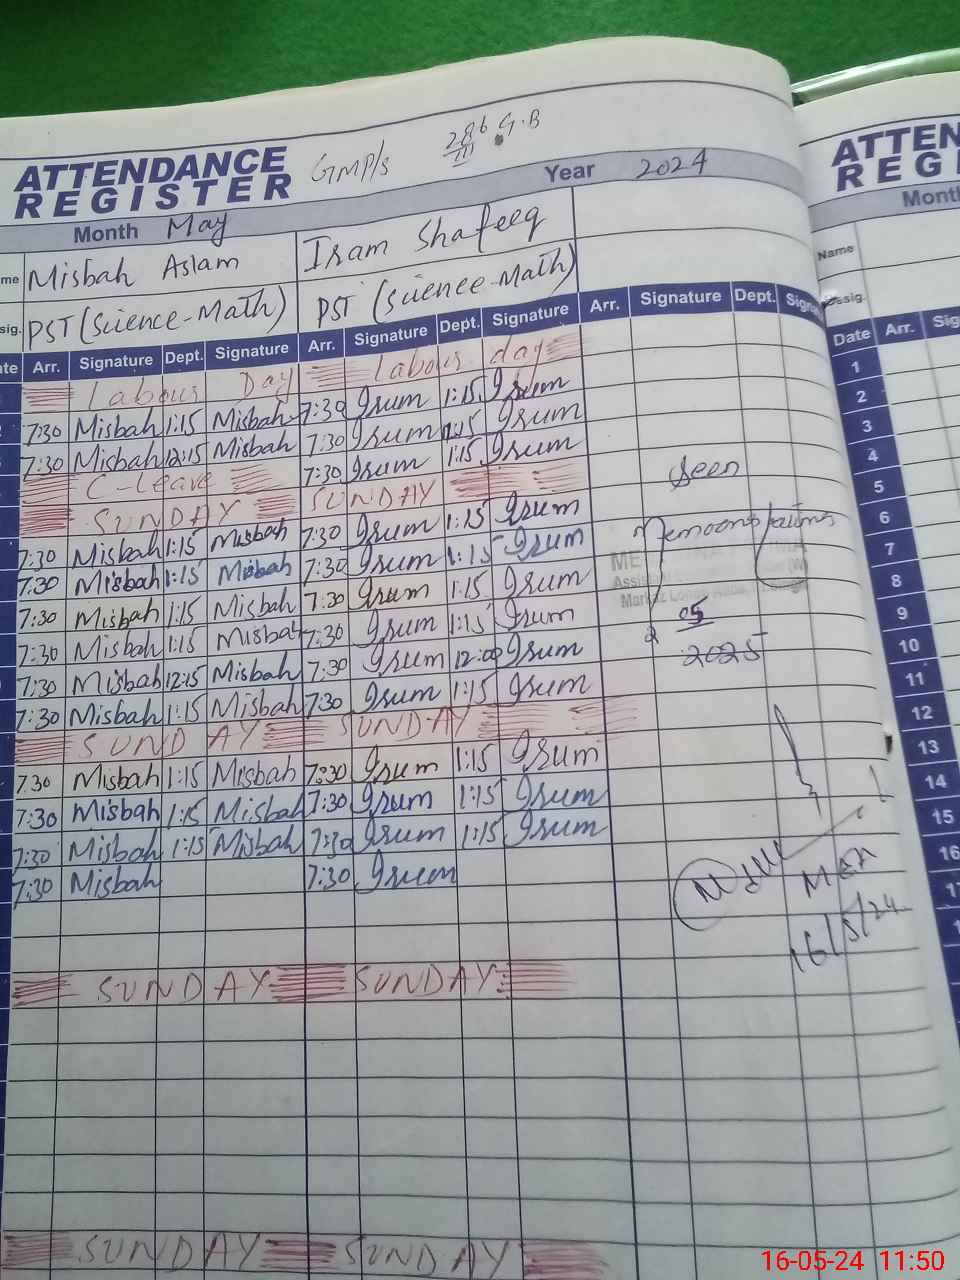 ATTENDANCE REGISTER GMP/S 286 G.B
Year 2024
Month May
Misbah Aslam Iram Shafeeq
PST (Science-Math) PST (Science-Math)
Arr. Signature Dept. Signature Arr. Signature Dept. Signature Arr. Signature Dept.
Labour Day Labour day
7:30 Misbah 1:15 Misbah 7:30 Irum 1:15 Irum
7:30 Misbah 12:15 Misbah 7:30 Irum 1:15 Irum
C-Leave 7:30 Irum 1:15 Irum
SUNDAY SUNDAY
7:30 Misbah 1:15 Misbah 7:30 Irum 1:15 Irum
7:30 Misbah 1:15 Misbah 7:30 Irum 1:15 Irum
7:30 Misbah 1:15 Misbah 7:30 Irum 1:15 Irum
7:30 Misbah 1:15 Misbah 7:30 Irum 1:15 Irum
7:30 Misbah 12:15 Misbah 7:30 Irum 12:00 Irum
7:30 Misbah 1:15 Misbah 7:30 Irum 1:15 Irum
SUNDAY SUNDAY
7:30 Misbah 1:15 Misbah 7:30 Irum 1:15 Irum
7:30 Misbah 1:15 Misbah 7:30 Irum 1:15 Irum
7:30 Misbah 1:15 Misbah 7:30 Irum 1:15 Irum
7:30 Misbah 7:30 Irum
SUNDAY SUNDAY
SUNDAY SUNDAY
Seen
05
2025
MEA
16/5/24
Name
Date Arr.
1
2
3
4
5
6
7
8
9
10
11
12
13
14
15
16
16-05-24 11:50